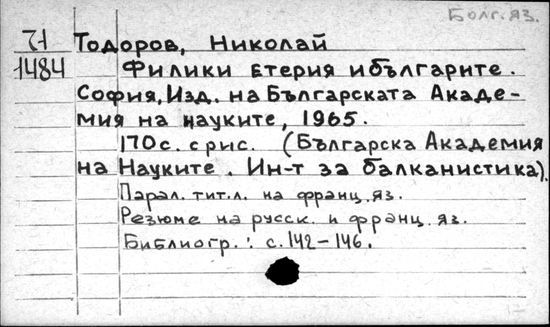 Болг. яз.
71 Тодоров, Николай
1484 Филики Етерия и българите.
София, Изд. на Българската Акаде-
мия на науките, 1965.
170 с. с рис. (Българска Академия
на Науките. Ин-т за балканистика).
Парал. тит. л. на франц. яз.
Резюме на русск. и франц. яз.
Библиогр.: с. 142-146.